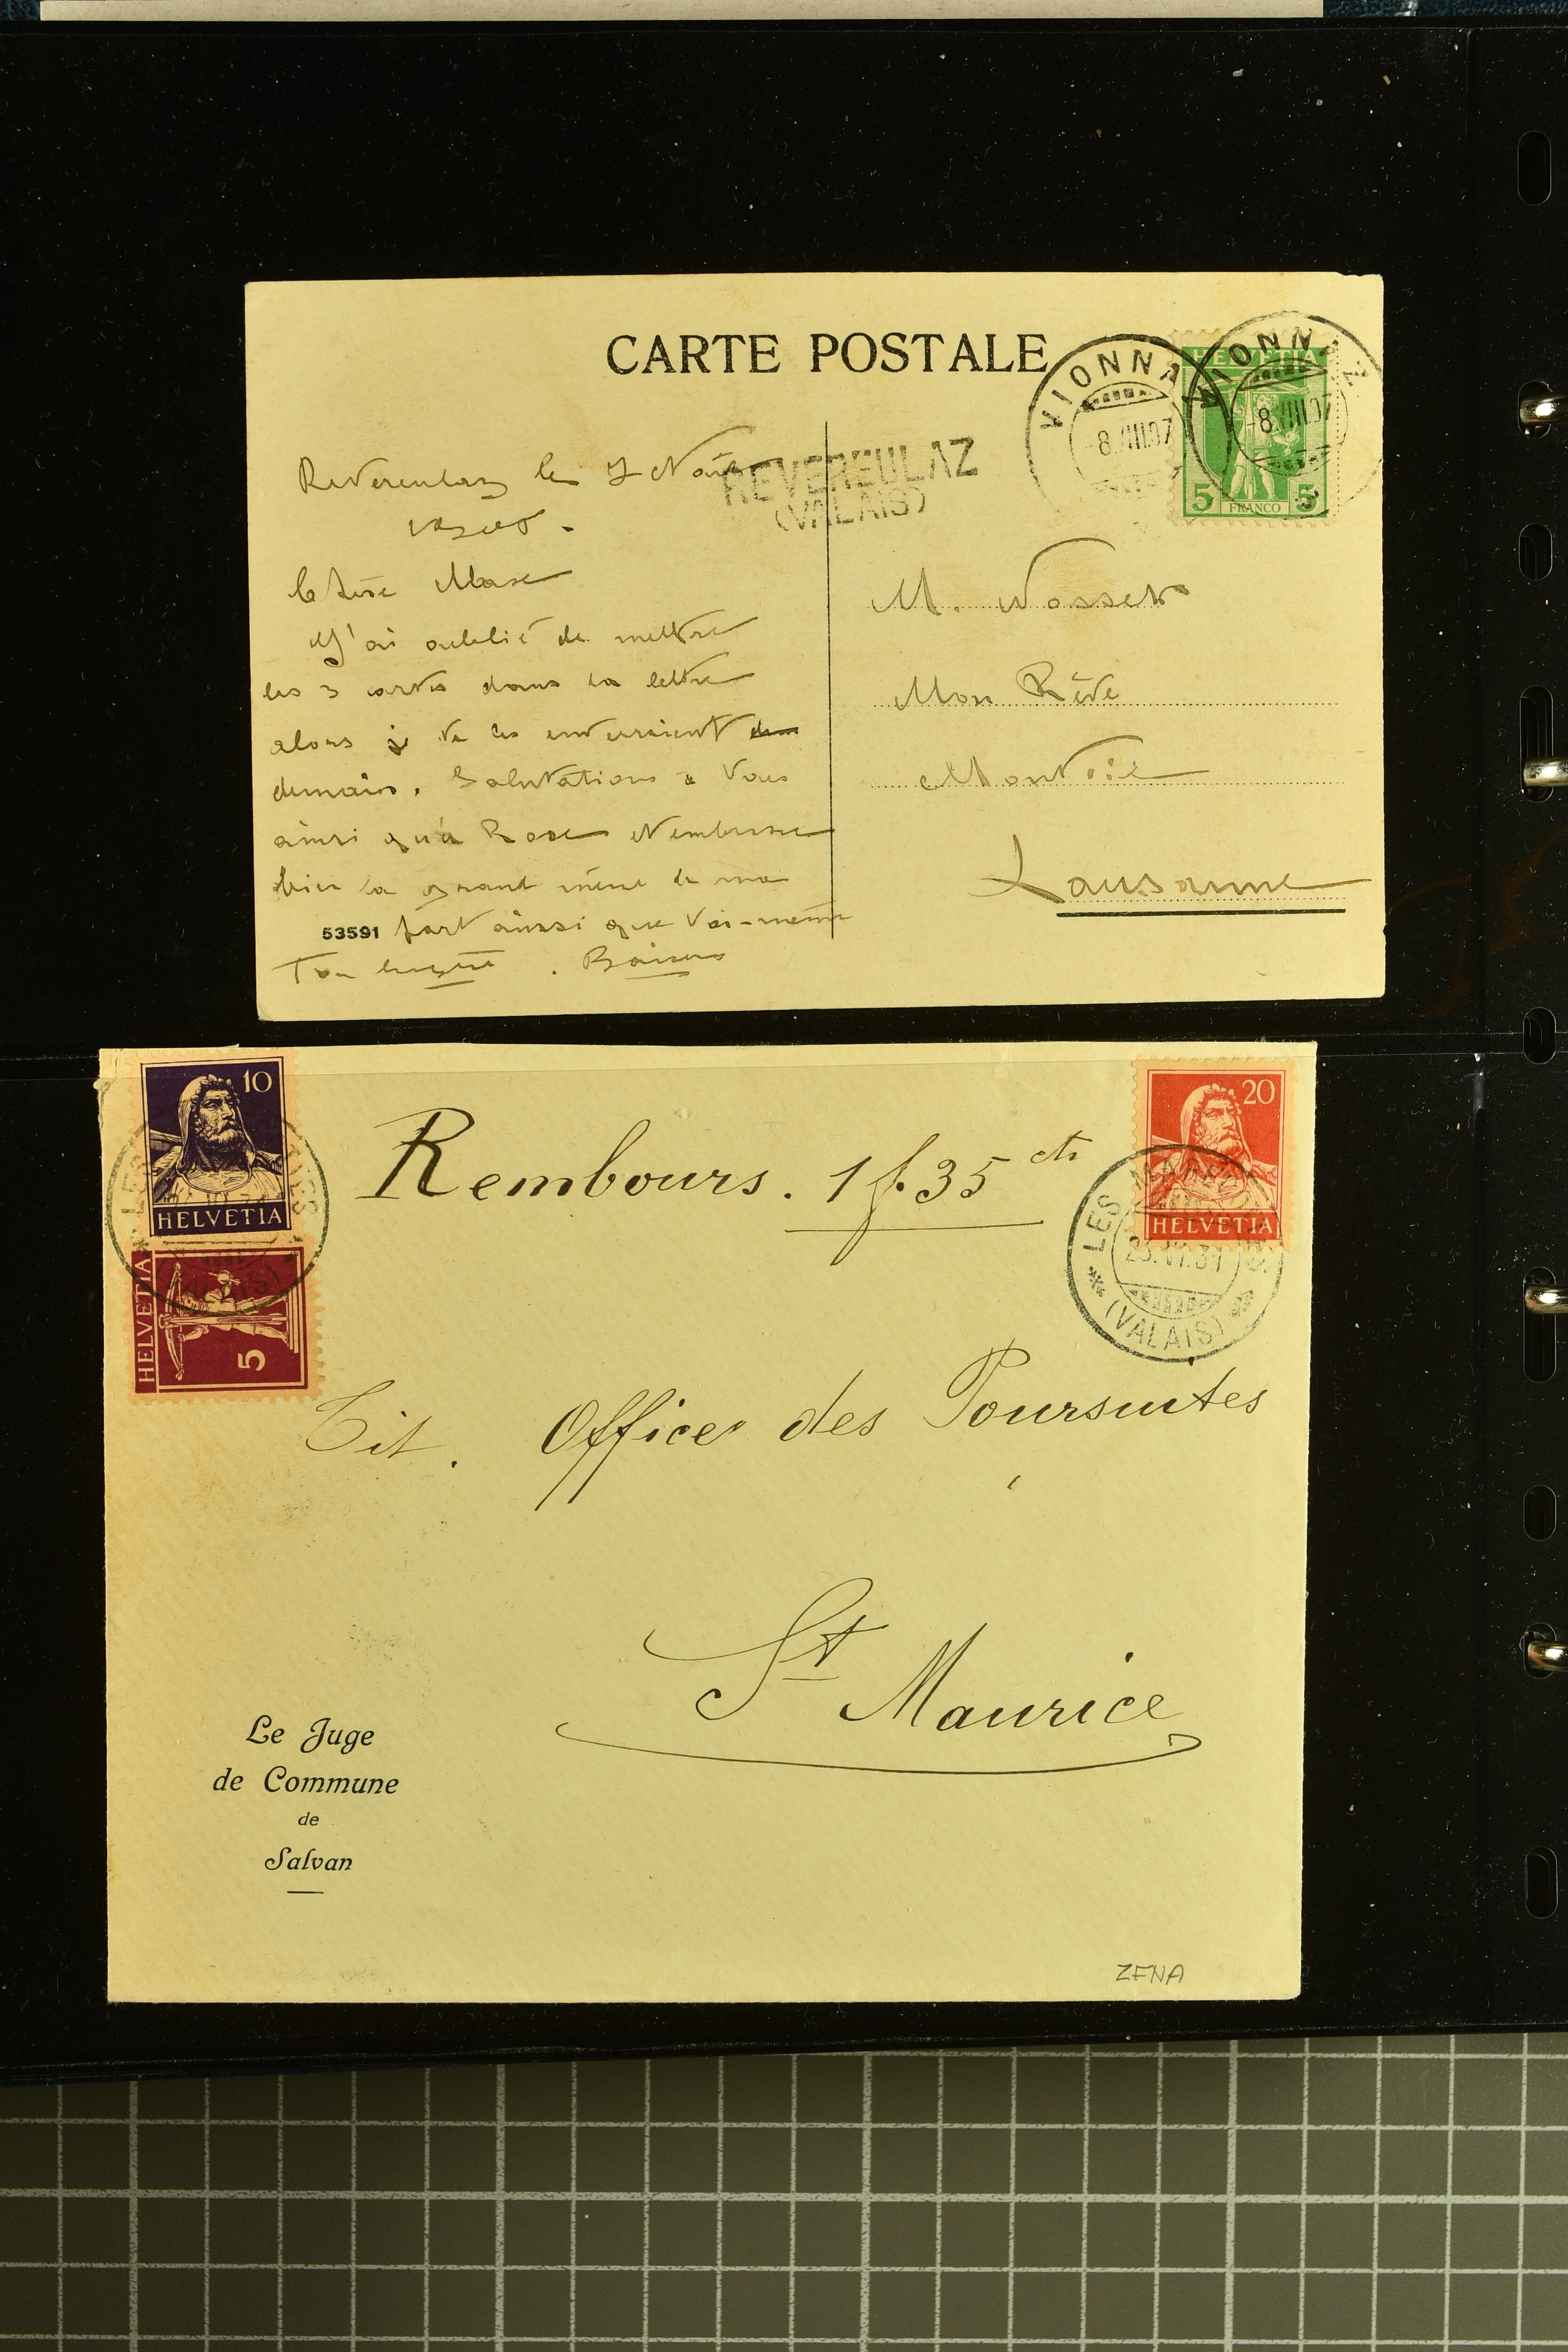 CARTE POSTALE
VIONNAZ
-8.VIII.07
VIONNAZ
-8.VIII.07
HELVETIA
5 FRANCO 5
REVEREULAZ
(VALAIS)
Revereulaz le 7
J'ai oublié de mettre
les 3 cartes dans la lettre
alors je te les
demain. Salutations à Vous
ainsi qu'à Rose
bien la grand mère de ma
53591 part aussi que toi-même
Ton Baisers
M.
Mon Rêve
Lausanne
10
HELVETIA
HELVETIA
5
Rembours. 1 f. 35 cts
20
HELVETIA
LES MARECOTTES
23.VI.31
(VALAIS)
Tit. Office des Poursuites
St Maurice
Le Juge
de Commune
de
Salvan
ZFNA